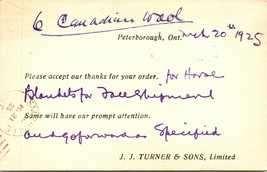 6 Canadian Wool
Peterborough, Ont. Mch 20th 1925
Please accept our thanks for your order. for Horse
Blankets for Fall Shipment
Same will have our prompt attention.
and go forward as Specified
J. J. TURNER & SONS, Limited